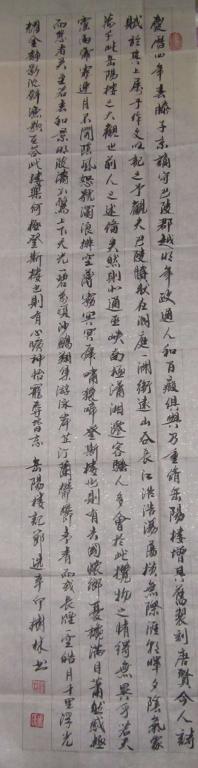 慶曆四年春滕子京謫守巴陵郡越明年政通人和百廢俱興乃重脩岳陽樓增其舊製刻唐賢今人詩
賦於其上屬予作文以記之予觀夫巴陵勝狀在洞庭一湖銜遠山吞長江浩浩蕩蕩橫無際涯朝暉夕陰氣象
萬千此岳陽樓之大觀也前人之述備矣然則北通巫峽南極瀟湘遷客騷人多會於此攬物之情得無異乎若夫
霪雨霏霏連月不開陰風怒號濁浪排空薄霧冥冥虎嘯猿啼登斯樓也則有去國懷鄉憂讒滿目蕭然感極
而悲者矣至若春和景明波瀾不驚上下天光一碧萬頃沙鷗翔集游泳岸芷汀蘭鬱鬱青青而或長煙空皓月千里浮光
耀金靜影沉璧漁歌互答此樂何極登斯樓也則有心曠神怡寵辱皆忘 岳陽樓記節選辛卯樹林書